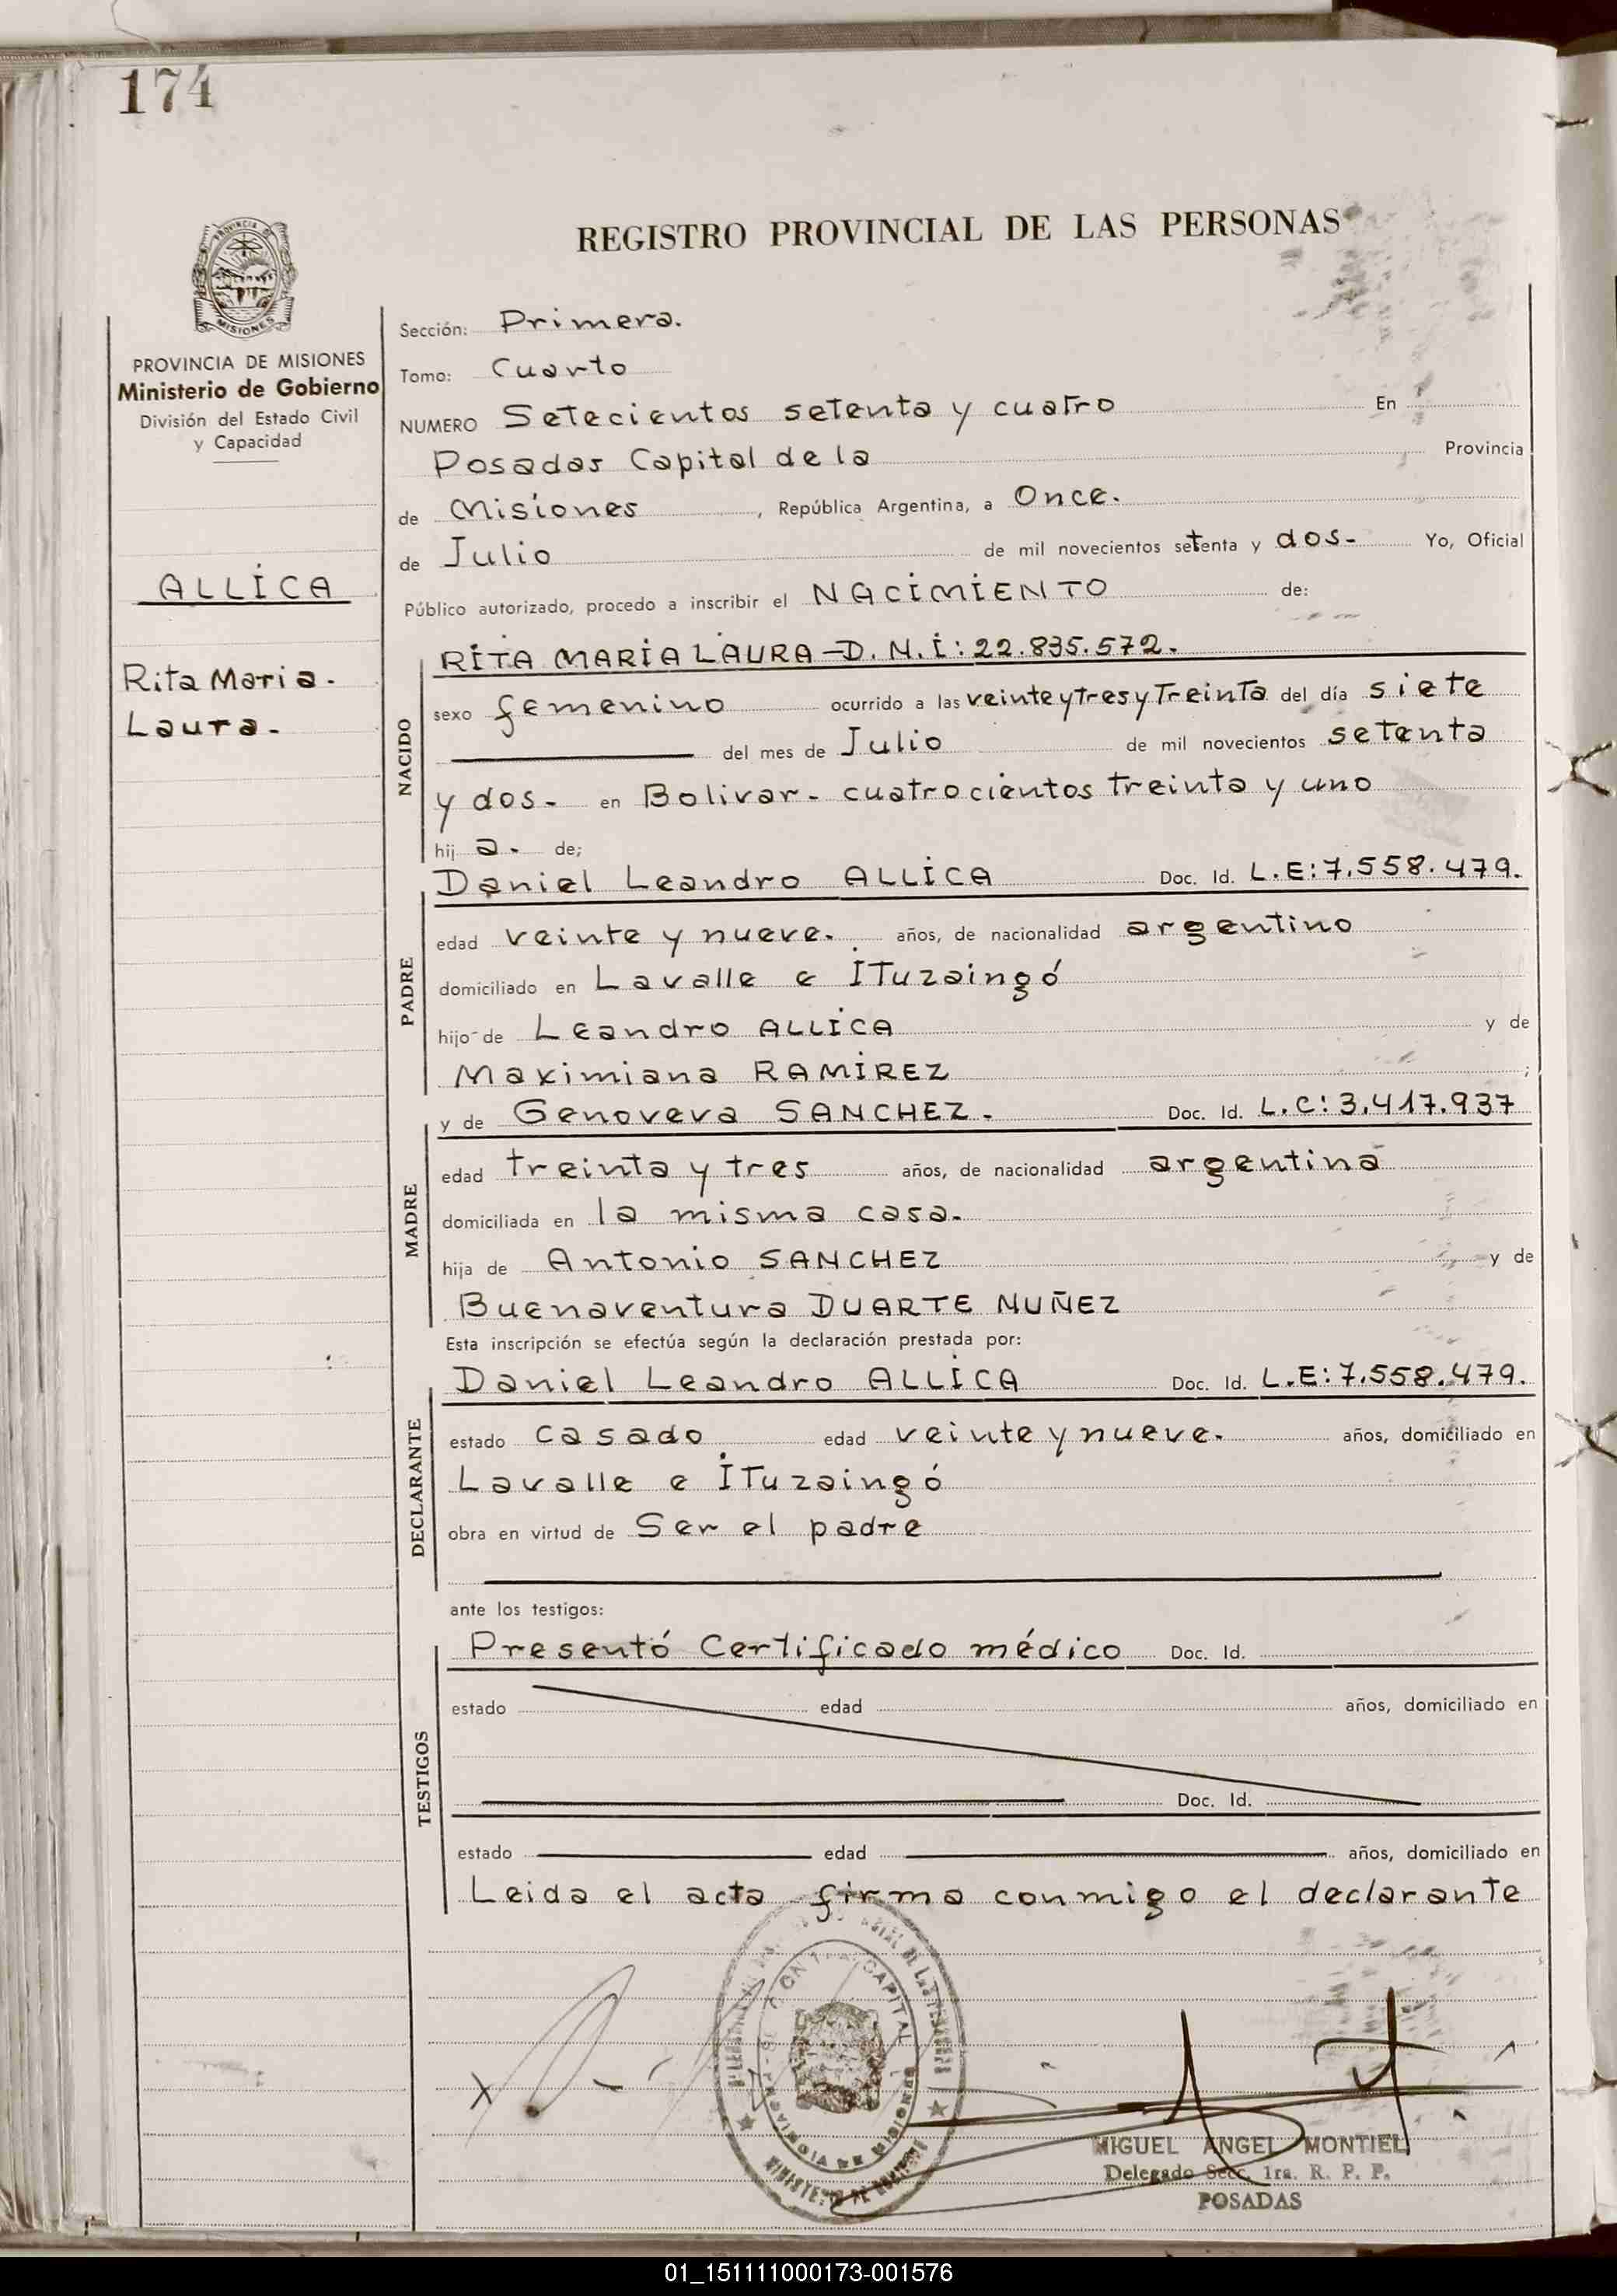 174
REGISTRO PROVINCIAL DE LAS PERSONAS
PROVINCIA DE
MISIONES
PROVINCIA DE MISIONES
Ministerio de Gobierno
División del Estado Civil
y Capacidad
ALLICA
Rita Maria.
Laura.
Sección: Primera.
Tomo: Cuarto
NUMERO Setecientos setenta y cuatro En
Posadas Capital de la Provincia
de Misiones, República Argentina, a Once.
de Julio de mil novecientos setenta y dos. Yo, Oficial
Público autorizado, procedo a inscribir el NACIMIENTO de:
NACIDO
RITA MARIA LAURA - D.N.I: 22.835.572.
sexo femenino ocurrido a las veinte y tres y Treinta del día siete
del mes de Julio de mil novecientos setenta
y dos. en Bolivar. cuatrocientos treinta y uno
hij a. de;
PADRE
Daniel Leandro ALLICA Doc. Id. L.E: 7.558.479.
edad veinte y nueve. años, de nacionalidad argentino
domiciliado en Lavalle e ITuzaingó
hijo de Leandro ALLICA y de
Maximiana RAMIREZ ;
MADRE
y de Genoveva SANCHEZ. Doc. Id. L.C: 3.417.937
edad treinta y tres años, de nacionalidad argentina
domiciliada en la misma casa.
hija de Antonio SANCHEZ y de
Buenaventura DUARTE NUÑEZ
Esta inscripción se efectúa según la declaración prestada por:
DECLARANTE
Daniel Leandro ALLICA Doc. Id. L.E: 7.558.479.
estado casado edad veinte y nueve. años, domiciliado en
Lavalle e ITuzaingó
obra en virtud de Ser el padre
ante los testigos:
TESTIGOS
Presentó Certificado médico Doc. Id.
estado edad años, domiciliado en
Doc. Id.
estado edad años, domiciliado en
Leida el acta firma conmigo el declarante
CAPITAL
PROVINCIA DE MISIONES
MINISTERIO DE GOBIERNO
MIGUEL ANGEL MONTIEL
Delegado Secc. 1ra. R. P. P.
POSADAS
01_151111000173-001576